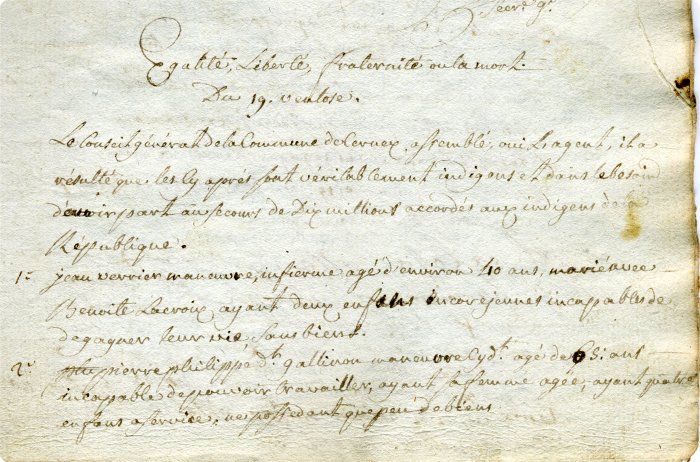 Secre. gr.
Egalité, Liberté, fraternité ou la mort.
Du 19. ventose.
Le Conseil général de la Commune de Cernex assemblé, oui L'agent, il a
résulté que les Cy après sont véritablement indigens et dans le besoin
d'avoir part au secours de Dix millions accordés aux indigens de la
République.
1° jean verrier maneuvre, infierme agé d'environ 40 ans, marié avec
Benoite Lacroix ayant deux enfans incore jeunes incapables de
de gagner leur vie, sans biens.
2° pierre philippe dt. gallinon maneuvre Cydt. agé de 65 ans
incapable de pouvoir travailler, ayant sa femme agée, ayant quatre
enfans a service, ne possedant que peu de biens